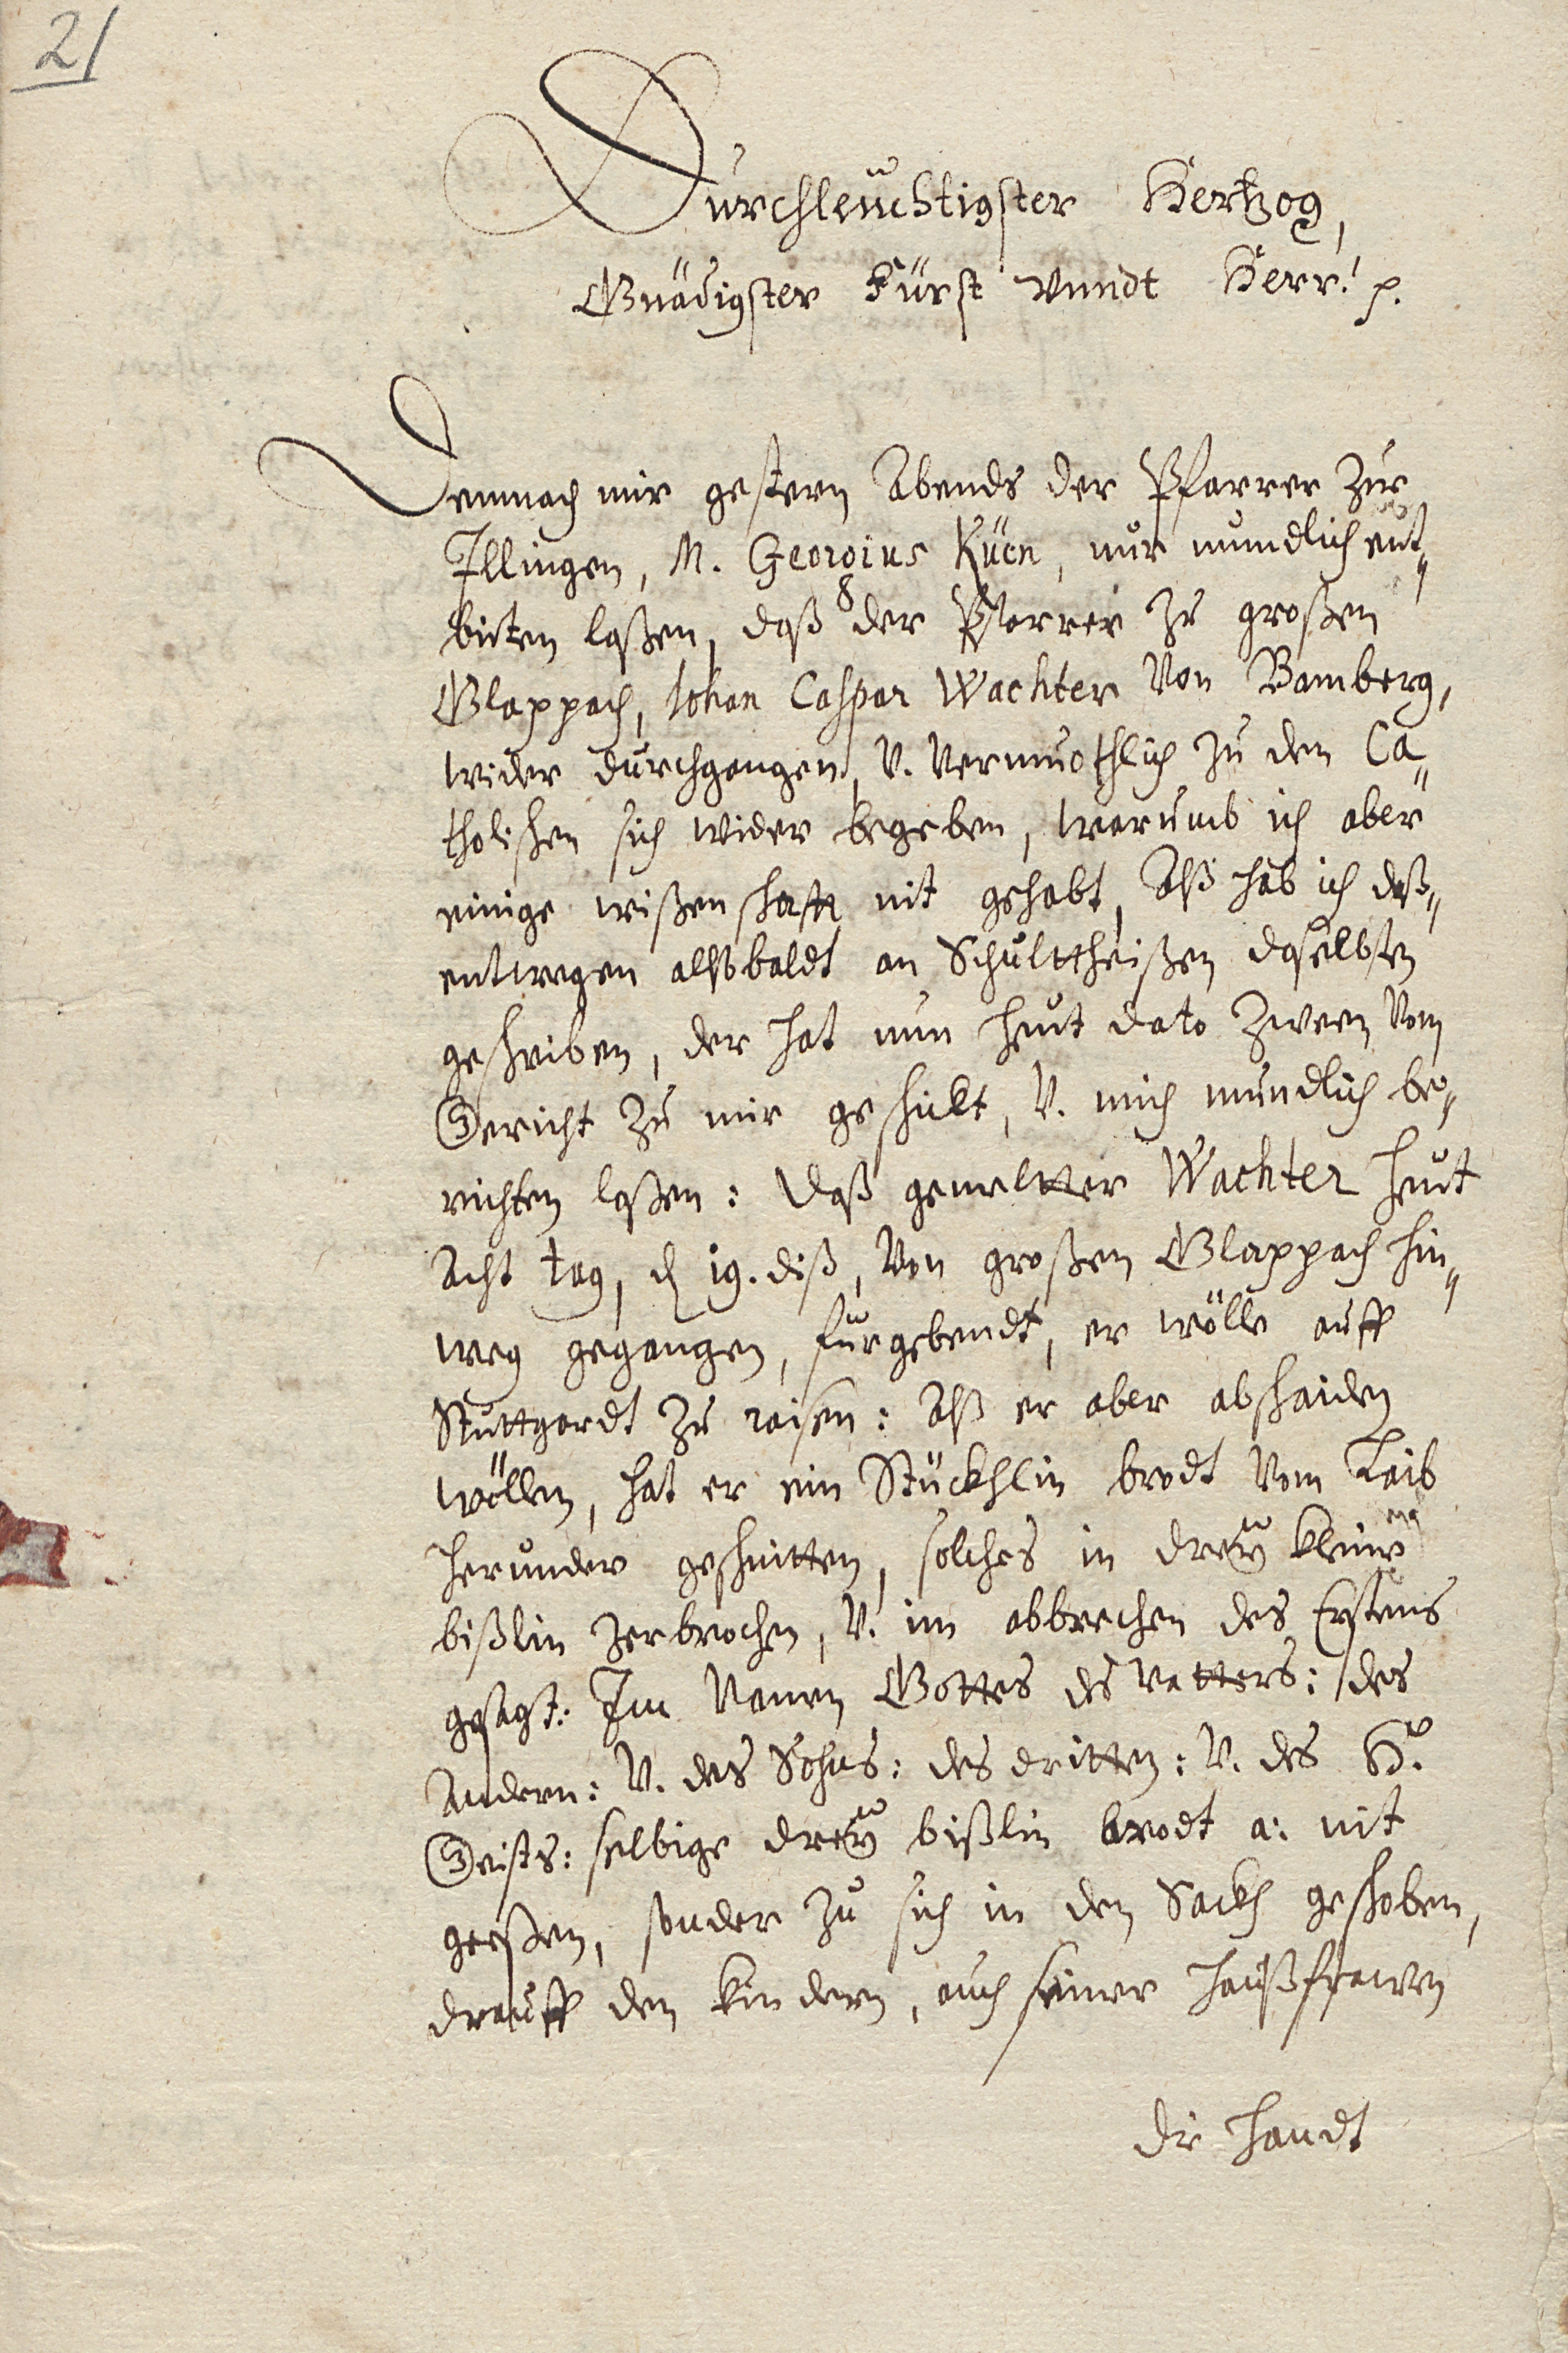 21
Durchleuchtigster Hertzog,
Gnädigster Fürst vnndt Herr! p.
Demnach mir gestern Abends der Pfarrer Zue
Illingen, M. Georgius Küen, nur mundlich ent„
bieten laßen, daß der Pfarrer zu großen
Glappach, Johan Caspar Wachter Von Bamberg,
wider durchgangen, V. Vermuothlich zu den Ca„
tholischen sich wider begeben, warumb ich aber
einige wißenschafft nit gehabt, Alß hab ich deß„
entwegen allsbaldt an Schulttheißen daselbsten
geschriben, der hat nun heut dato Zween Vom
Gericht zu mir geschickt, V. mich mundlich be„
richten laßen: daß gemeltter Wachter heut
Acht tag, d 19. diß, Von großen Glappach hin„
weg gegangen, fürgebendt, er wölle auff
Stuttgardt zu raisen: Alß er aber abschaiden
wöllen, hat er ein Stückhlin brodt Vom Laib
herunder geschnitten, solches in dreÿ kleine
bißlin zerbrochen, V. im abbrechen des Erstens
gesagt: Im Namen Gottes des vatters: des
Andern: V. des Sohns: des dritten: V. des H.
Geists: selbige dreÿ bißlin brodt a: nit
geeßen, sonder zu sich in den Sackh geschoben,
drauff den kindern, auch seiner haußfrawen
die handt